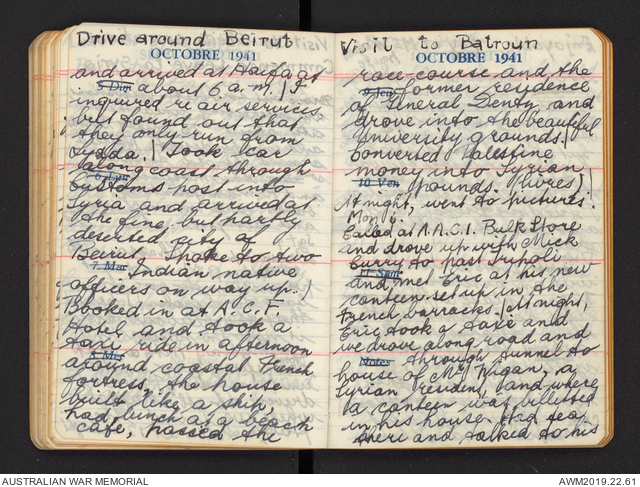 Drive around Beirut
OCTOBRE 1941
and arrived at Haifa at
5 Dim about 6 a.m. / I
inquired re air services
but found out that
they only run from
Lydda. / Took car
along coast through
6 Lun
Customs post into
Syria and arrived at
the fine, but partly
deserted city of
Beirut. Spoke to two
7. Mar Indian native
officers on way up. /
Booked in at A.C.F.
Hotel and took a
taxi ride in afternoon
8 Mer
around coastal French
fortress, the house
built like a ship,
had lunch at a beach
cafe, passed the
Visit to Batroun
OCTOBRE 1941
race-course and the
9 Jeu former residence
of General Dentz and
drove into the beautiful
University grounds. / I
converted Palestine
money into Syrian
10 Ven pounds. (livres) /
At night, went to pictures.
Mon 6.
Called at A.A.C.I. Bulk Store
and drove up with Mick
Curry to past Tripoli
11 Sam
and met Eric at his new
canteen set up in the
French barracks. / At night,
Eric took a taxi and
we drove along road and
Notes through tunnel to
house of Mr. , a
Syrian resident, (and where
a canteen was billeted
in his house. Had tea
there and talked to his
AUSTRALIAN WAR MEMORIAL
AWM2019.22.61